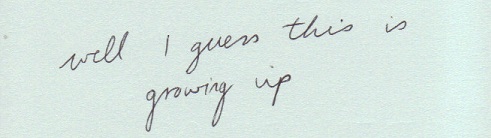 well I guess this is
growing up